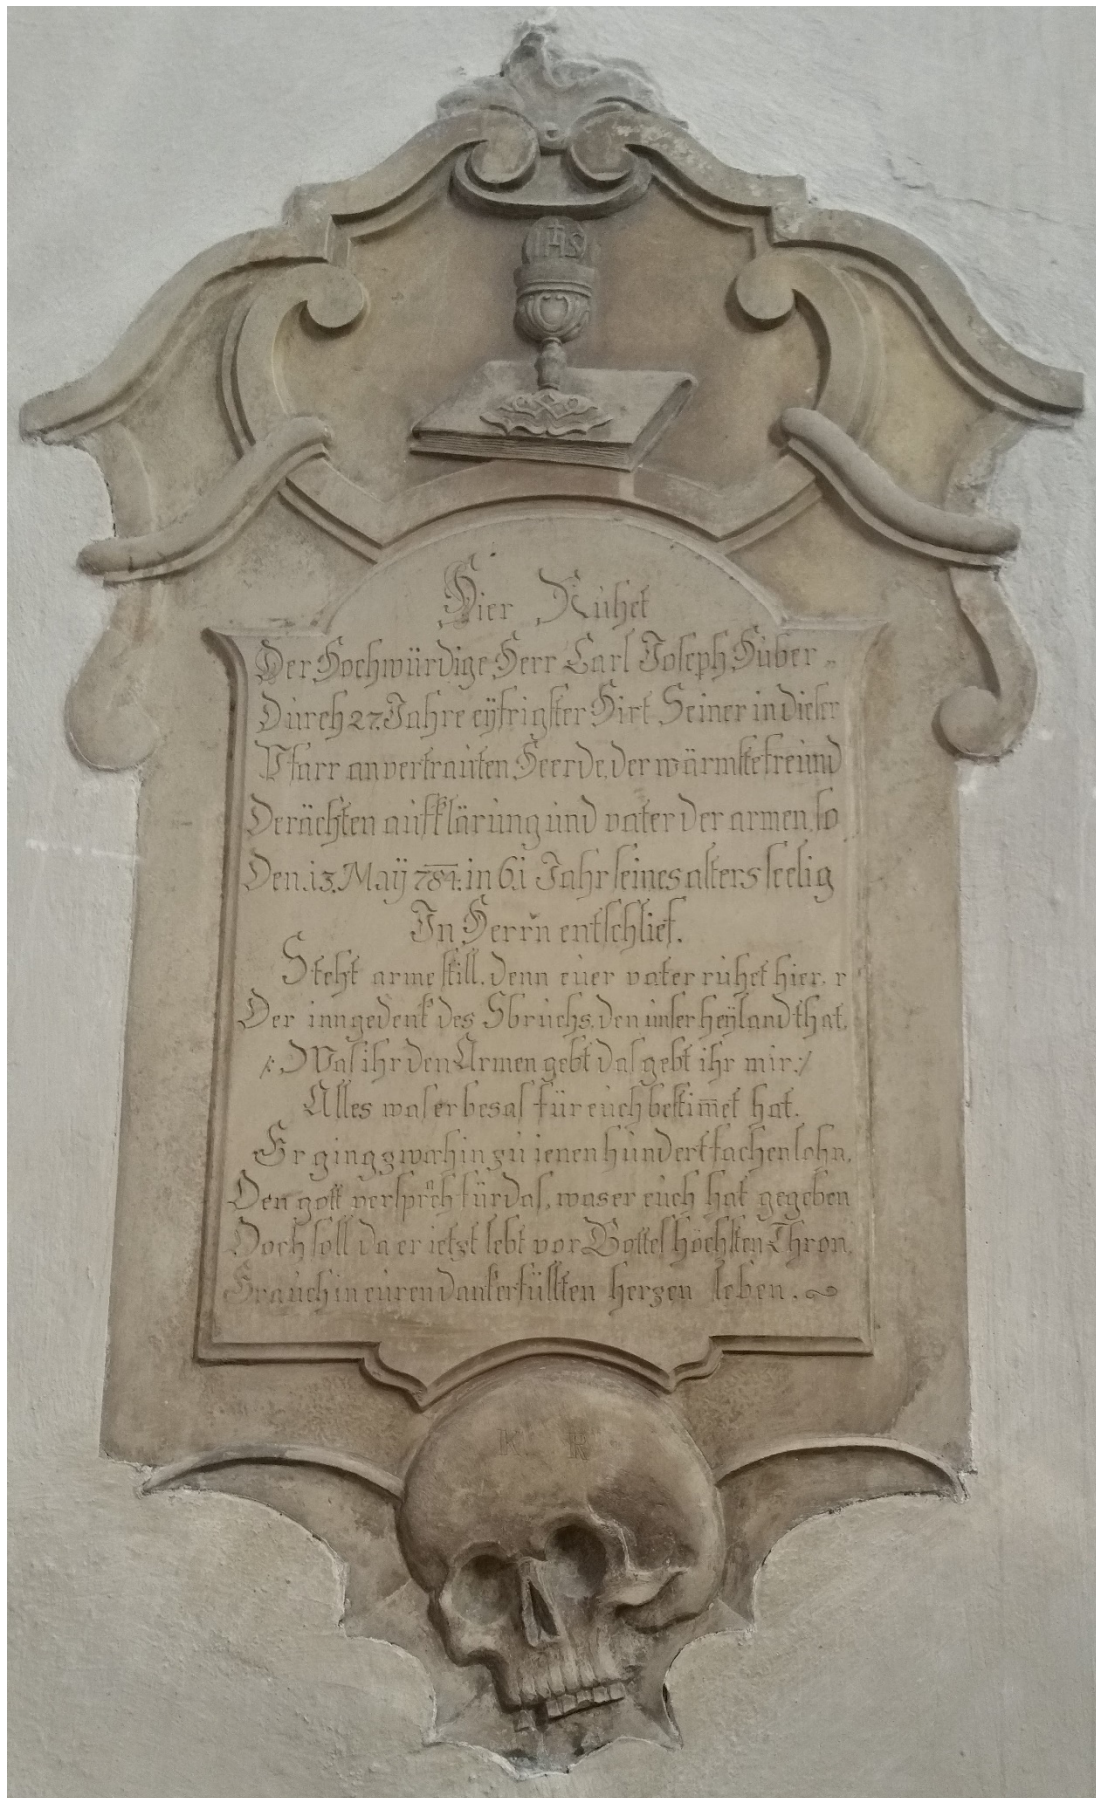 IHS
Hier Ruhet
Der Hochwürdige Herr Carl Joseph Huber
Durch 27. Jahre eÿfrigster Hirt Seiner in dieser
Pfarr anvertrauten Heerde, der wärmste freund
Der ächten aufklärung und vater der armen, so
Den .13. Maÿ 784. in 61 Jahr seines alters seelig
In Herrn entschlief.
Steht arme still. denn euer vater ruhet hier. r
Der inngedenk des Sbruchs. den unser heÿland that,
/: Was ihr den Armen gebt das gebt ihr mir :/
Alles was er besas für euch bestim̅et hat.
Er ging zwar hin zu ienen hundertfachen lohn,
Den gott versprach für das, was er euch hat gegeben
Doch soll da er ietzt lebt vor Gottes höchsten Thron,
Er auch in euren dankerfüllten herzen leben.
K R